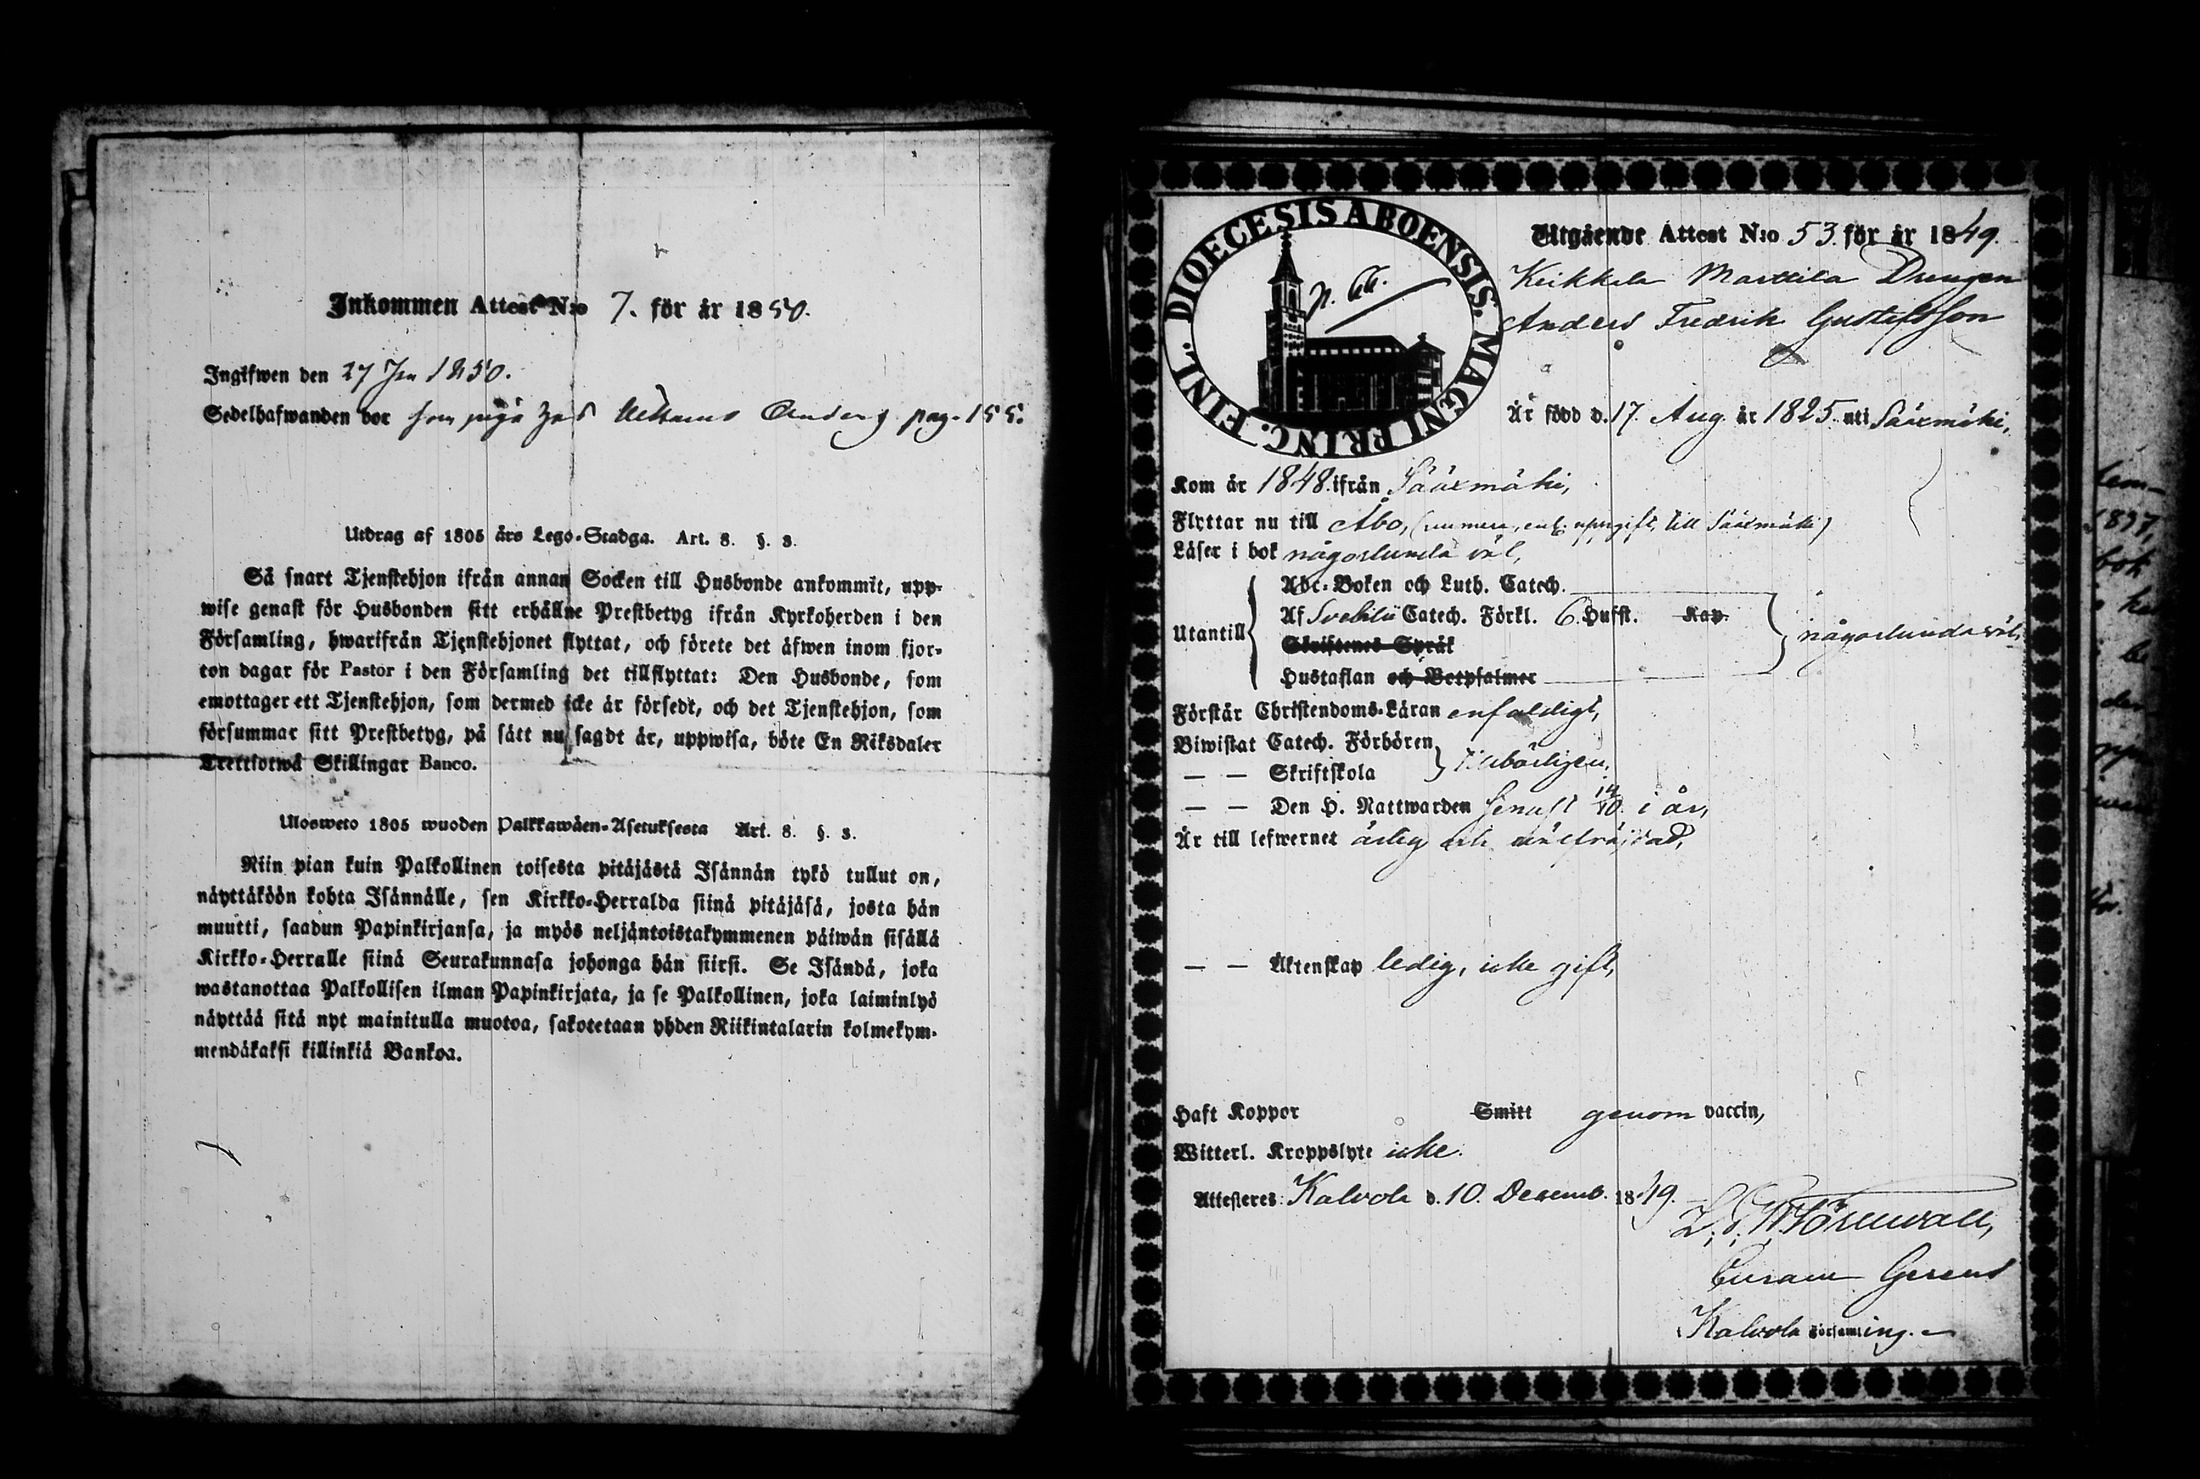 Inkommen Attest N:o 7. för år 1850.
Ingifwen den 27 Jan 1850.
Sedelhafwanden bor hos Anders pag. 155.
Utdrag af 1805 års Lego-Stadga. Art. 8. §. 3.
Så snart Tjenstehjon ifrån annan Socken till Husbonde ankommit, upp-
wise genast för Husbonden sitt erhållne Prestbetyg ifrån Kyrkoherden i den
Församling, hwarifrån Tjenstehjonet flyttat, och förete det äfwen inom fjor-
ton dagar för Pastor i den Församling det tillflyttat: Den Husbonde, som
emottager ett Tjenstehjon, som dermed icke är försedt, och det Tjenstehjon, som
försummar sitt Prestbetyg, på sätt nu sagdt är, uppwisa, böte En Riksdaler
Trettiotwå Skillingar Banco.
Ulosweto 1805 wuoden Palkkawäen-Asetuksesta Art. 8. §. 3.
Niin pian kuin Palkollinen toisesta pitäjästä Isännän tykö tullut on,
näyttäköön kohta Isännälle, sen Kirkko-Herralda siinä pitäjäsä, josta hän
muutti, saadun Papinkirjansa, ja myös neljäntoistakymmenen päiwän sisällä
Kirkko-Herralle siinä Seurakunnasa johonga hän siirsi. Se Isändä, joka
wastanottaa Palkollisen ilman Papinkirjata, ja se Palkollinen, joka laiminlyö
näyttää sitä nyt mainitulla muotoa, sakotetaan yhden Riikintalarin kolmekym-
mendäkaksi killinkiä Bankoa.
DIOECESIS ABOENSIS. MAGNI PRINC. FINL.
Utgående Attest N:o 53. för år 1849.
Keikkala Marttila Drengen
Anders Fredrik Gustafsson
Är född d. 17. Aug. år 1825. uti Sääxmäki,
Kom år 1848. ifrån Sääxmäki,
Flyttar nu till Åbo, (numera, enl. uppgift, till Sääxmäki)
Läser i bok någorlunda väl,
Abc-Boken och Luth. Catech.
Utantill
Af Svebilii Catech. Förkl. 6. Hufst. Kap.
någorlunda väl,
Skriftenes Språk
Hustaflan och Botpsalmer
Förstår Christendoms-Läran enfaldigt,
Biwistat Catech. Förhören
— — Skriftskola
— — Den H. Nattwarden senast 14/10. i år,
Är till lefwernet ärlig och välfräjdad,
— — Äktenskap ledig, icke gift,
Haft Koppor Smitt genom vaccin,
Witterl. Kroppslyte icke.
Attesteras: Kalvola d. 10. Decemb. 1849.
Curam Gerens
Kalvola Församling.